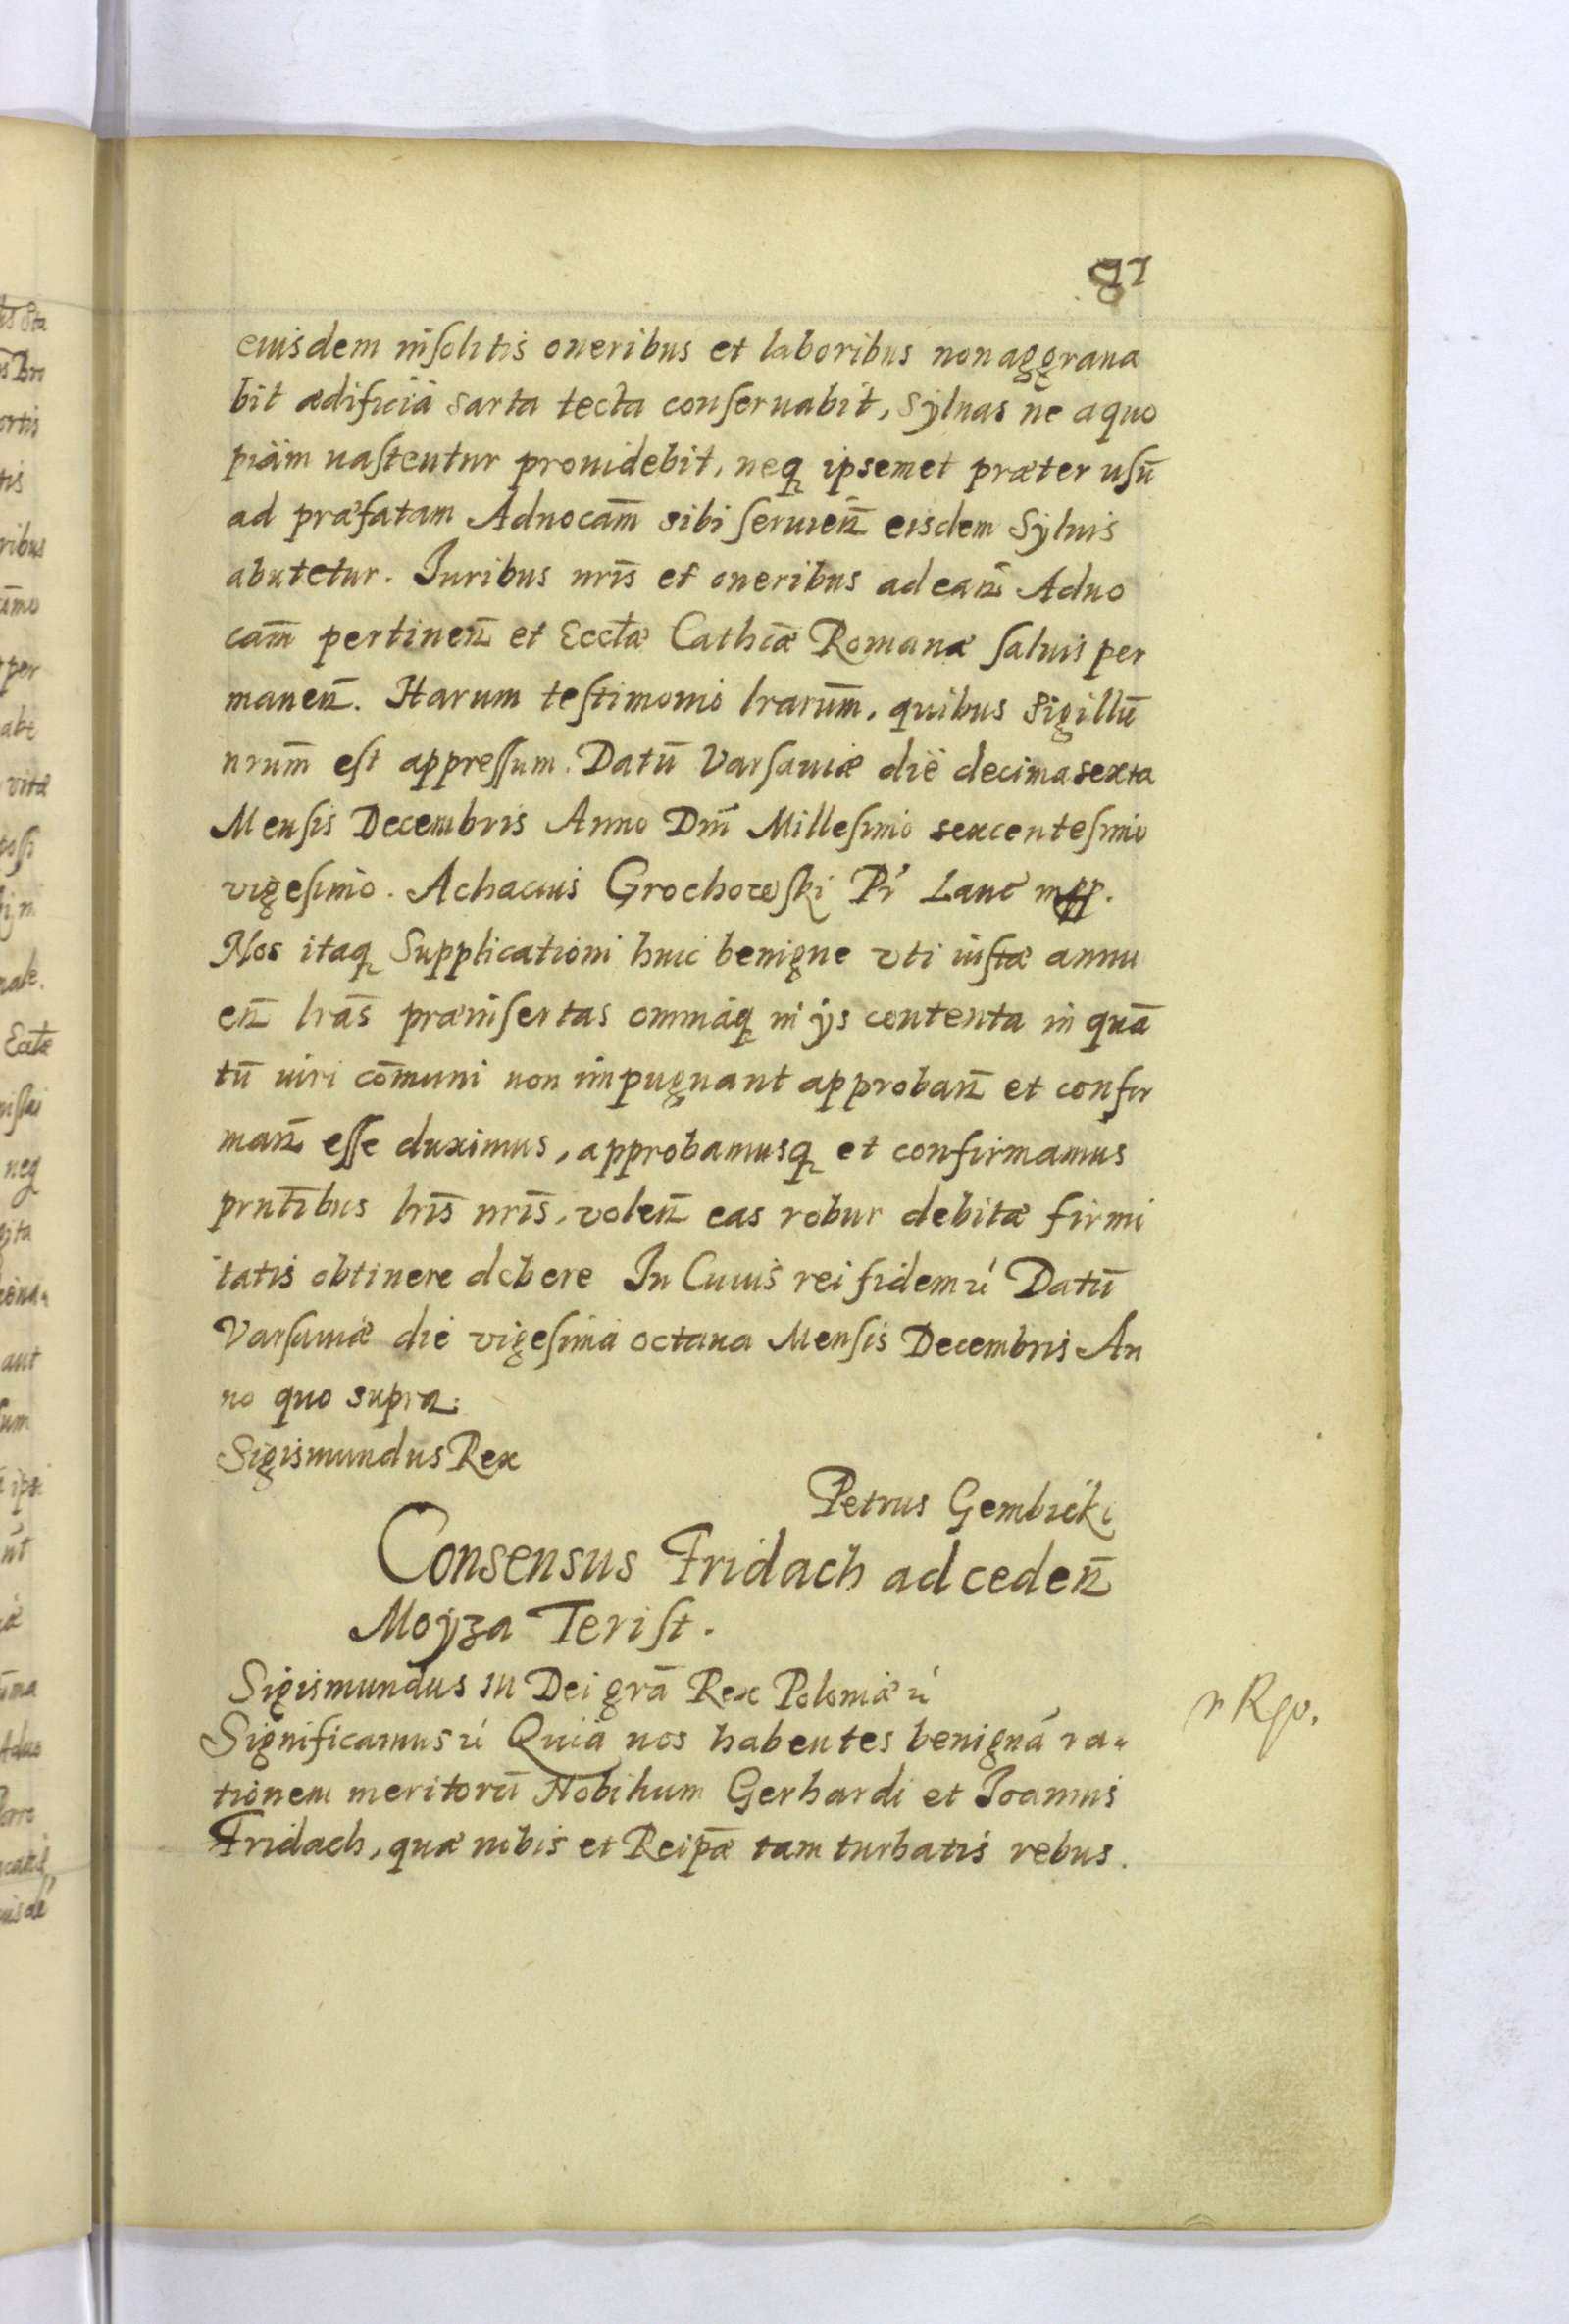 91
euisdem insolitis oneribus et laboribus non aggraua
bit ædificia sarta tecta conseruabit, syluas ne a quo
piam uastentur prouidebit, neq ipsemet præter usū
ad præfatam Aduocam̄ sibi seruien̄ eisdem syluis
abutetur. Iuribus nris̄ et oneribus ad ean̄ Aduo
cam̄ pertinen̄ et Eccłæ Cathcǣ Romanæ saluis per
manen̄. Harum testimonio lrarum̄, quibus Sigillū
nrum̄ est appressum. Datū Varsauiæ die decima sexta
Mensis Decembris Anno Dni̅ Millesimo sexcentesimo
vigesimo. Achacius Grochowski Pr Lanc mpp.
Nos itaq Supplicationi huic benigne vti iustæ annu
en̄ lras̄ præinsertas omniaq in ijs contenta in quā
tū iuri cōmuni non impugnant approban̄ et confir
man̄ esse duximus, approbamusq et confirmamus
prntib̄us lris̄ nris̄, volen̄ eas robur debitæ firmi
tatis obtinere debere In Cuius rei fidem ré Datū
Varsauiæ die vigesima octaua Mensis Decembris An
no quo supra.
Sigismundus Rex
Petrus Gembicki
Consensus Fridach ad ceden̄
Moyza Terist.
Sigismundus III Dei grā Rex Poloniæ ré
Significamus ré Quia nos habentes benignā ra-
tionem meritorū Nobilium Gerhardi et Joannis
Fridach, quæ nobis et Reipǣ tam turbatis rebus.